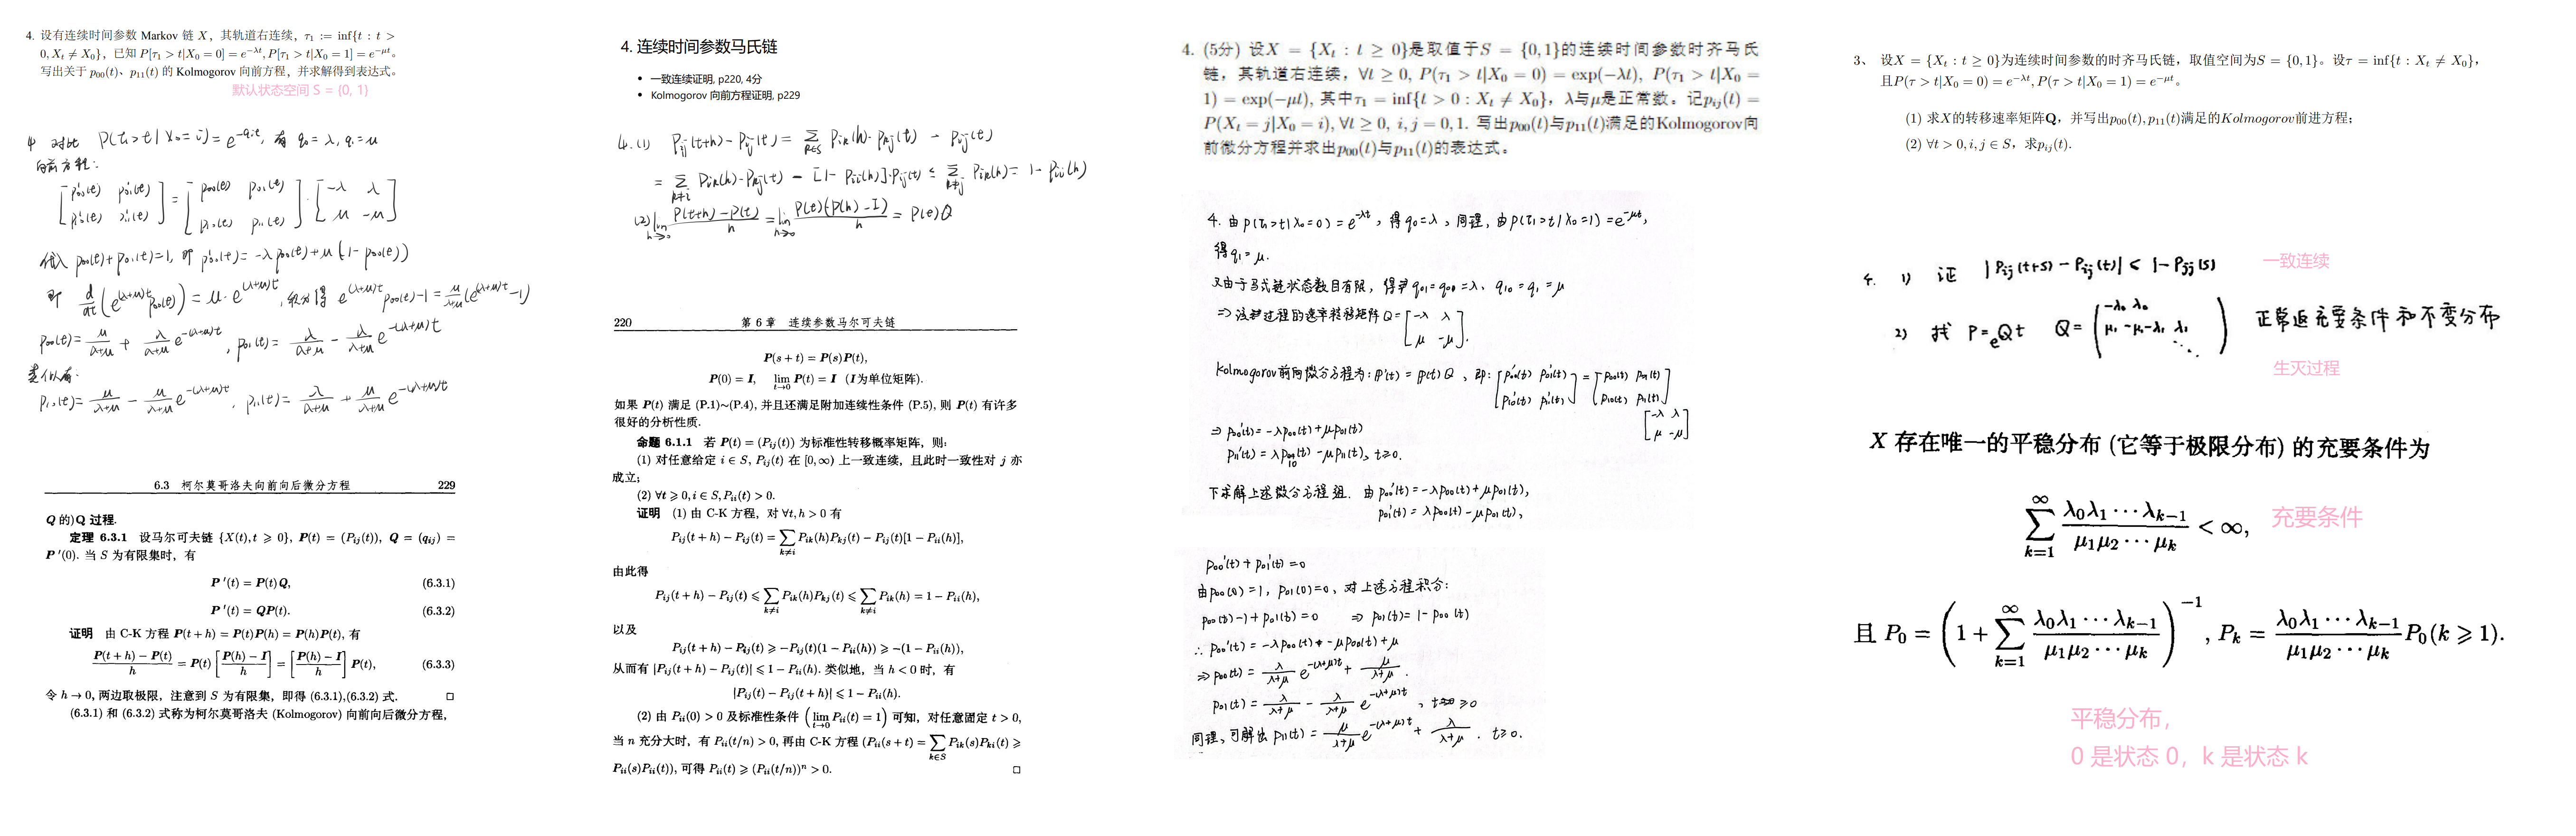 4. 设有连续时间参数 Markov 链 X，其轨道右连续，τ₁ := inf{t : t >
0, Xₜ ≠ X₀}，已知 P[τ₁ > t|X₀ = 0] = e^{-λt}, P[τ₁ > t|X₀ = 1] = e^{-μt}。
写出关于 p₀₀(t)、p₁₁(t) 的 Kolmogorov 向前方程，并求解得到表达式。
默认状态空间 S = {0, 1}
4 对比 P(τ₁>t|X₀=i)=e^{-qᵢt}, 有 q₀=λ, q₁=μ
向前方程:
[p₀₀'(t) p₀₁'(t)] = [p₀₀(t) p₀₁(t)] · [-λ λ]
[p₁₀'(t) p₁₁'(t)] [p₁₀(t) p₁₁(t)] [μ -μ]
代入 p₀₀(t)+p₀₁(t)=1, 即 p₀₀'(t)=-λp₀₀(t)+μ(1-p₀₀(t))
即 d/dt(e^{(λ+μ)t}p₀₀(t))=μ·e^{(λ+μ)t}, 积分得 e^{(λ+μ)t}p₀₀(t)-1=μ/(λ+μ)(e^{(λ+μ)t}-1)
p₀₀(t)=μ/(λ+μ) + λ/(λ+μ) e^{-(λ+μ)t}, p₀₁(t)=λ/(λ+μ) - λ/(λ+μ) e^{-(λ+μ)t}
类似有:
p₁₀(t)=μ/(λ+μ) - μ/(λ+μ) e^{-(λ+μ)t}, p₁₁(t)=λ/(λ+μ) + μ/(λ+μ) e^{-(λ+μ)t}
6.3 柯尔莫哥洛夫向前向后微分方程 229
Q 的)Q 过程.
定理 6.3.1 设马尔可夫链 {X(t), t ⩾ 0}, P(t) = (Pᵢⱼ(t)), Q = (qᵢⱼ) =
P′(0). 当 S 为有限集时, 有
P′(t) = P(t)Q, (6.3.1)
P′(t) = QP(t). (6.3.2)
证明 由 C-K 方程 P(t + h) = P(t)P(h) = P(h)P(t), 有
(P(t + h) − P(t))/h = P(t)[(P(h) − I)/h] = [(P(h) − I)/h]P(t), (6.3.3)
令 h → 0, 两边取极限, 注意到 S 为有限集, 即得 (6.3.1),(6.3.2) 式. □
(6.3.1) 和 (6.3.2) 式称为柯尔莫哥洛夫 (Kolmogorov) 向前向后微分方程,
4. 连续时间参数马氏链
• 一致连续证明, p220, 4分
• Kolmogorov 向前方程证明, p229
4.(1) Pᵢⱼ(t+h) - Pᵢⱼ(t) = Σ_{k∈S} Pᵢₖ(h)·Pₖⱼ(t) - Pᵢⱼ(t)
= Σ_{k≠i} Pᵢₖ(h)·Pₖⱼ(t) - [1-Pᵢᵢ(h)]·Pᵢⱼ(t) ≤ Σ_{k≠j} Pᵢₖ(h) = 1-Pᵢᵢ(h)
(2) lim_{h→0} (P(t+h)-P(t))/h = lim_{h→0} P(t)(P(h)-I)/h = P(t)Q
220 第 6 章 连续参数马尔可夫链
P(s + t) = P(s)P(t),
P(0) = I, lim_{t→0} P(t) = I (I为单位矩阵).
如果 P(t) 满足 (P.1)~(P.4), 并且还满足附加连续性条件 (P.5), 则 P(t) 有许多
很好的分析性质.
命题 6.1.1 若 P(t) = (Pᵢⱼ(t)) 为标准性转移概率矩阵, 则:
(1) 对任意给定 i ∈ S, Pᵢⱼ(t) 在 [0, ∞) 上一致连续, 且此时一致性对 j 亦
成立;
(2) ∀t ⩾ 0, i ∈ S, Pᵢᵢ(t) > 0.
证明 (1) 由 C-K 方程, 对 ∀t, h > 0 有
Pᵢⱼ(t + h) − Pᵢⱼ(t) = Σ_{k≠i} Pᵢₖ(h)Pₖⱼ(t) − Pᵢⱼ(t)[1 − Pᵢᵢ(h)],
由此得
Pᵢⱼ(t + h) − Pᵢⱼ(t) ⩽ Σ_{k≠i} Pᵢₖ(h)Pₖⱼ(t) ⩽ Σ_{k≠i} Pᵢₖ(h) = 1 − Pᵢᵢ(h),
以及
Pᵢⱼ(t + h) − Pᵢⱼ(t) ⩾ −Pᵢⱼ(t)(1 − Pᵢᵢ(h)) ⩾ −(1 − Pᵢᵢ(h)),
从而有 |Pᵢⱼ(t + h) − Pᵢⱼ(t)| ⩽ 1 − Pᵢᵢ(h). 类似地, 当 h < 0 时, 有
|Pᵢⱼ(t) − Pᵢⱼ(t + h)| ⩽ 1 − Pᵢᵢ(h).
(2) 由 Pᵢᵢ(0) > 0 及标准性条件 (lim_{t→0} Pᵢᵢ(t) = 1) 可知, 对任意固定 t > 0,
当 n 充分大时, 有 Pᵢᵢ(t/n) > 0, 再由 C-K 方程 (Pᵢᵢ(s + t) = Σ_{k∈S} Pᵢₖ(s)Pₖᵢ(t) ⩾
Pᵢᵢ(s)Pᵢᵢ(t)), 可得 Pᵢᵢ(t) ⩾ (Pᵢᵢ(t/n))ⁿ > 0. □
4. (5分) 设X = {Xₜ : t ≥ 0}是取值于S = {0,1}的连续时间参数时齐马氏
链，其轨道右连续，∀t ≥ 0, P(τ₁ > t|X₀ = 0) = exp(−λt), P(τ₁ > t|X₀ =
1) = exp(−μt), 其中τ₁ = inf{t > 0 : Xₜ ≠ X₀}，λ与μ是正常数。记pᵢⱼ(t) =
P(Xₜ = j|X₀ = i), ∀t ≥ 0, i, j = 0, 1. 写出p₀₀(t)与p₁₁(t)满足的Kolmogorov向
前微分方程并求出p₀₀(t)与p₁₁(t)的表达式。
4. 由P(τ₁>t|X₀=0)=e^{-λt}, 得q₀=λ, 同理, 由P(τ₁>t|X₀=1)=e^{-μt},
得q₁=μ.
又由于马氏链状态数目有限, 得q₀₁=q₀=λ、q₁₀=q₁=μ
⇒ 该过程的速率转移矩阵Q=[-λ λ]
[μ -μ].
Kolmogorov前向微分方程为: P'(t)=P(t)Q, 即: [p₀₀'(t) p₀₁'(t)] = [p₀₀(t) p₀₁(t)]
[p₁₀'(t) p₁₁'(t)] [p₁₀(t) p₁₁(t)]
[-λ λ]
[μ -μ]
⇒ p₀₀'(t)=-λp₀₀(t)+μp₀₁(t)
p₁₁'(t)=λp₁₀(t)-μp₁₁(t), t≥0.
下求解上述微分方程组. 由p₀₀'(t)=-λp₀₀(t)+μp₀₁(t),
p₀₁'(t)=λp₀₀(t)-μp₀₁(t),
p₀₀'(t)+p₀₁'(t)=0
由p₀₀(0)=1, p₀₁(0)=0, 对上述方程积分:
p₀₀(t)-1+p₀₁(t)=0 ⇒ p₀₁(t)=1-p₀₀(t)
∴ p₀₀'(t)=-λp₀₀(t)+-μp₀₀(t)+μ
⇒ p₀₀(t)=λ/(λ+μ) e^{-(λ+μ)t}+μ/(λ+μ).
p₀₁(t)=λ/(λ+μ) - λ/(λ+μ) e^{-(λ+μ)t}, t≥0
同理, 可解出p₁₁(t)=μ/(λ+μ) e^{-(λ+μ)t}+λ/(λ+μ). t≥0.
3、 设X = {Xₜ : t ≥ 0}为连续时间参数的时齐马氏链，取值空间为S = {0,1}。设τ = inf{t : Xₜ ≠ X₀}，
且P(τ > t|X₀ = 0) = e^{−λt}, P(τ > t|X₀ = 1) = e^{−μt}。
(1) 求X的转移速率矩阵Q，并写出p₀₀(t), p₁₁(t)满足的Kolmogorov前进方程；
(2) ∀t > 0, i, j ∈ S，求pᵢⱼ(t).
4. 1) 证 |Pᵢⱼ(t+s)-Pᵢⱼ(t)| < 1-Pⱼⱼ(s)
一致连续
2) 找 P=e^{Qt} Q=(-λ₀ λ₀
μ₁ -μ₁-λ₁ λ₁
⋱) 正常返充要条件和不变分布
生灭过程
X 存在唯一的平稳分布 (它等于极限分布) 的充要条件为
Σ_{k=1}^{∞} (λ₀λ₁⋯λₖ₋₁)/(μ₁μ₂⋯μₖ) < ∞,
充要条件
且 P₀ = (1 + Σ_{k=1}^{∞} (λ₀λ₁⋯λₖ₋₁)/(μ₁μ₂⋯μₖ))⁻¹, Pₖ = (λ₀λ₁⋯λₖ₋₁)/(μ₁μ₂⋯μₖ) P₀(k ⩾ 1).
平稳分布，
0 是状态 0，k 是状态 k